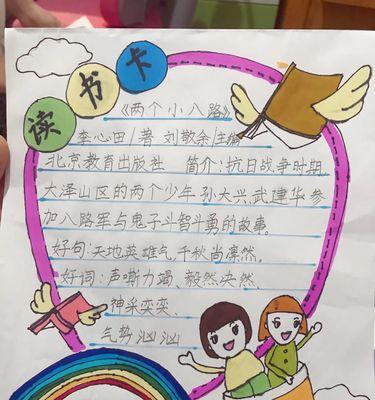 读书卡
《两个小八路》
李心田/著 刘敬余/主编
北京教育出版社 简介:抗日战争时期,
大泽山区的两个少年孙大兴,武建华,参
加八路军与鬼子斗智斗勇的故事。
好句:天地英雄气,千秋尚凛然。
好词:声嘶力竭、毅然决然、
神采奕奕、
气势汹汹